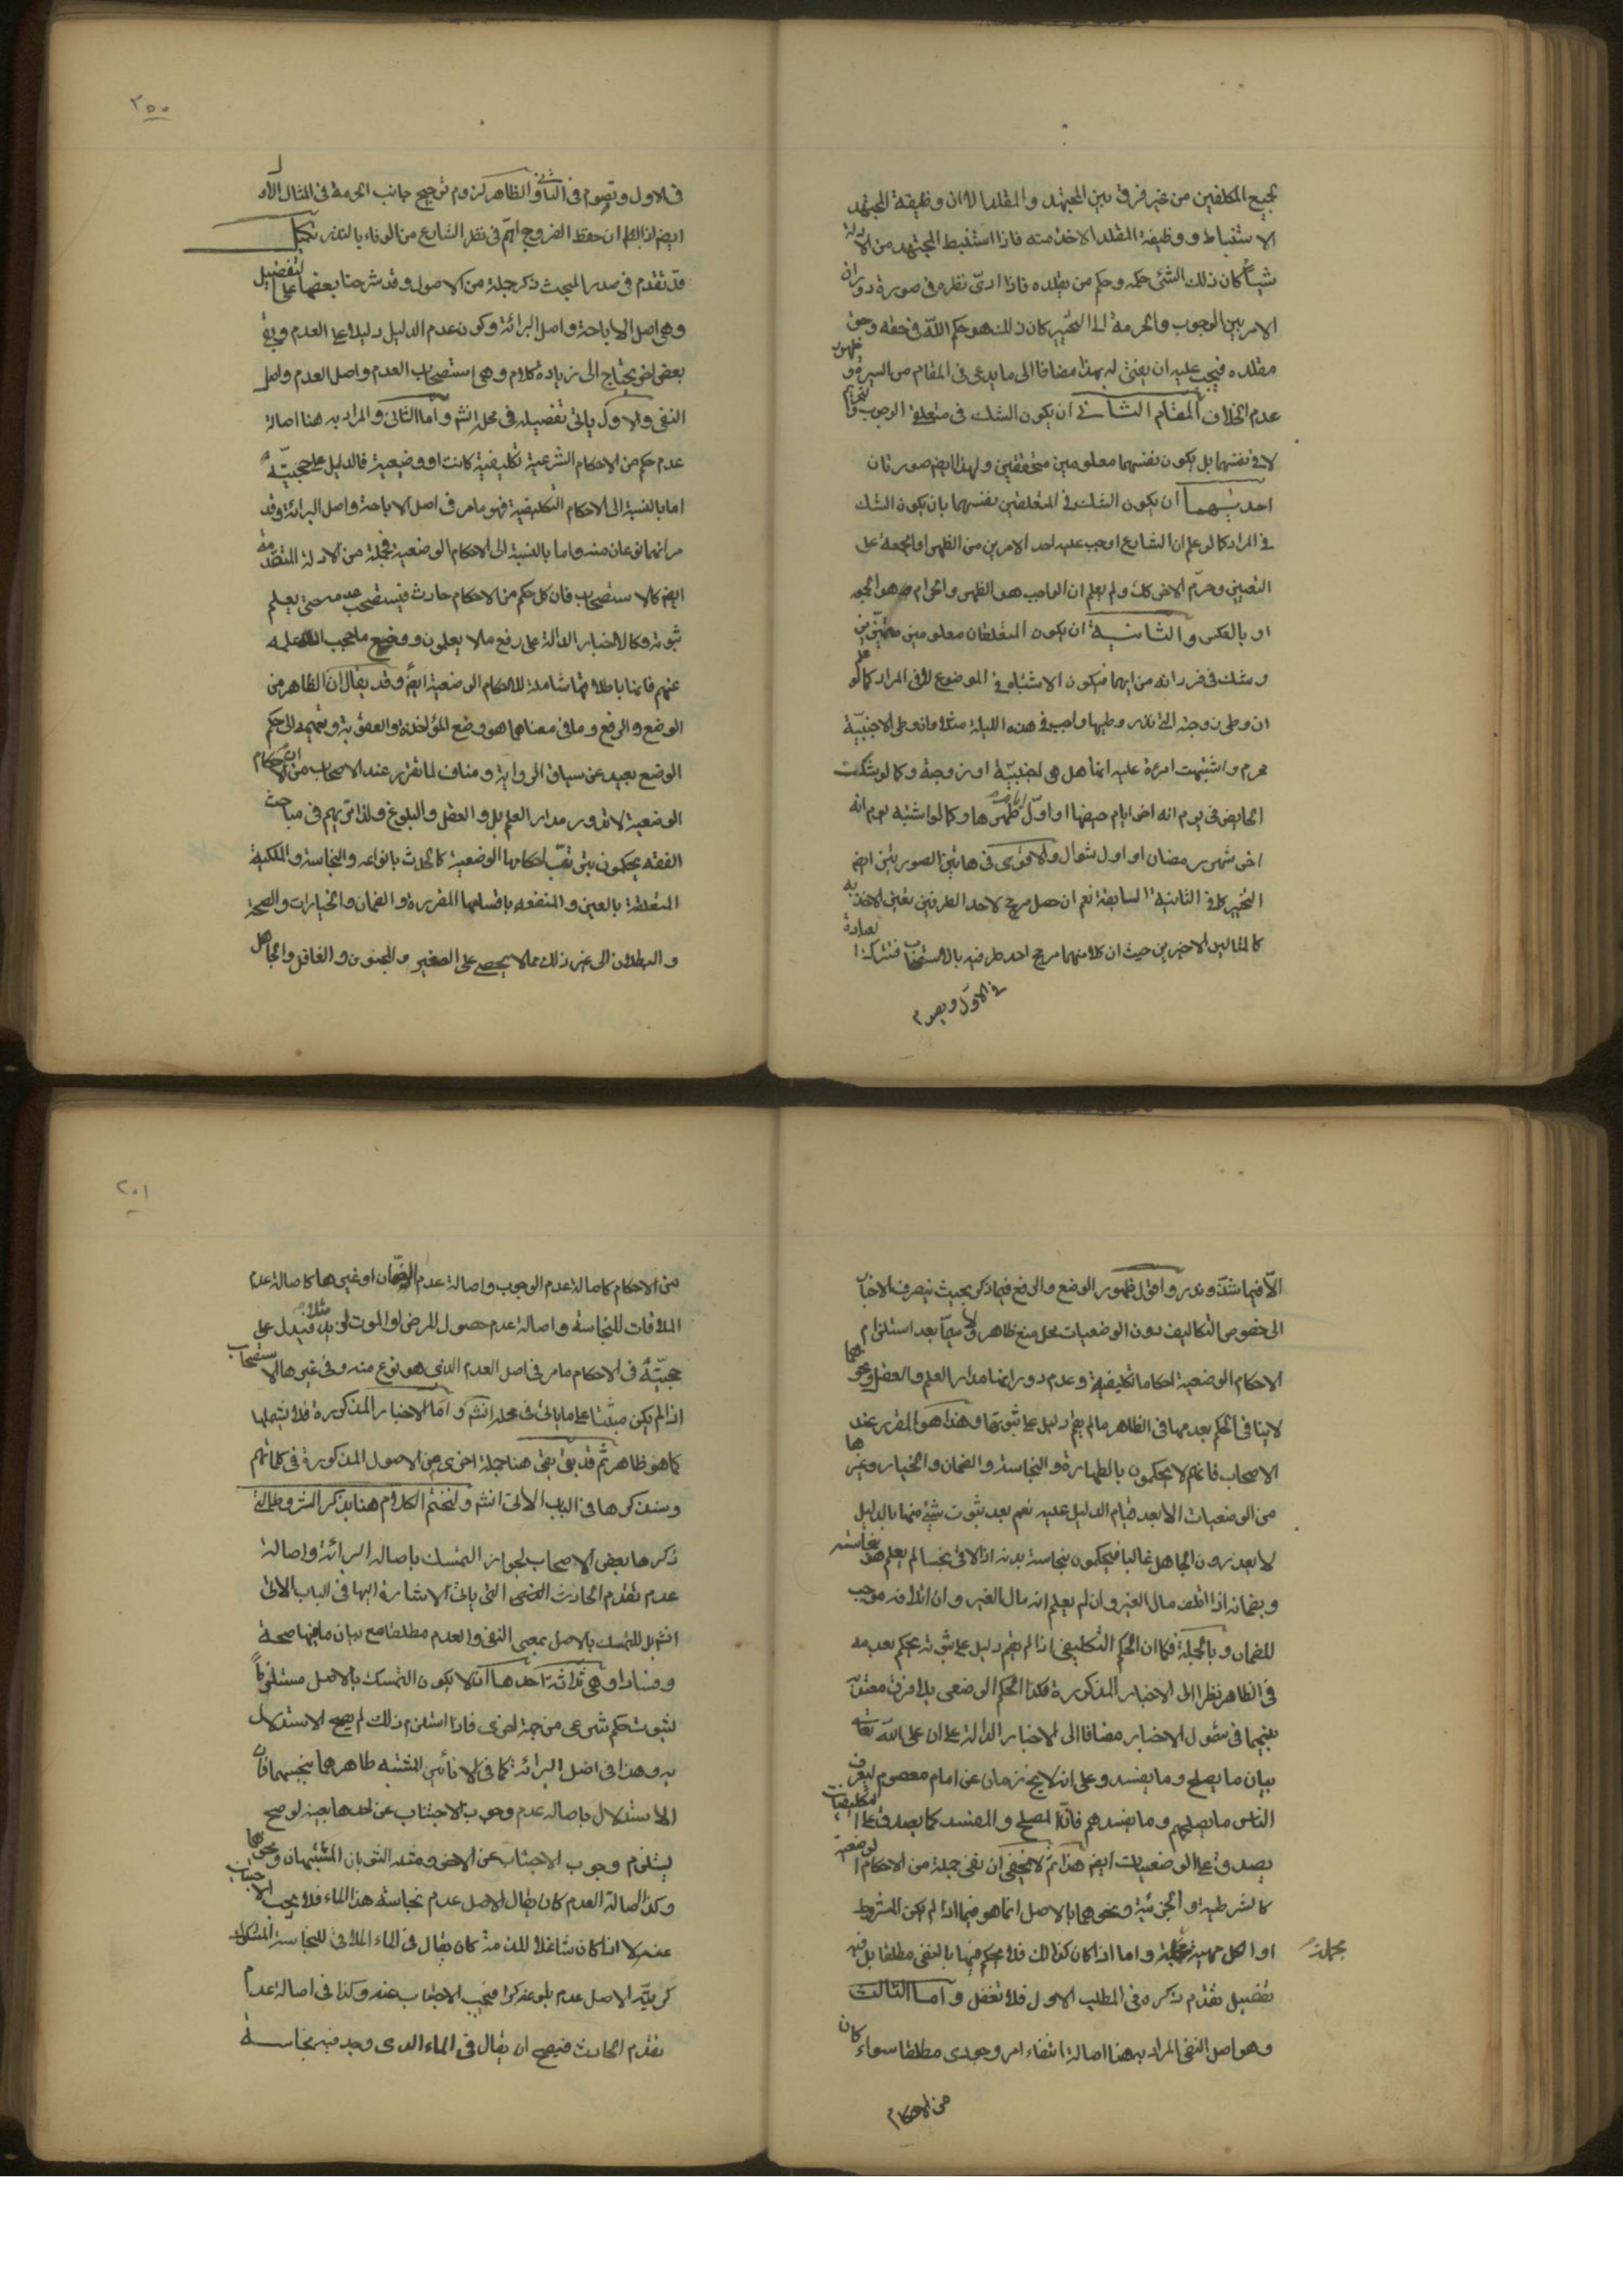 لجميع المكلفين من غير فرق بين المجتهد والمقلد الا ان وظيفة المجتهد
الاستنباط ووظيفة المقلد الاخذ منه فاذا استنبط المجتهد من الادلة
شيئاً كان ذلك الشئ حكمه وحكم من يقلده فاذا ادّى نظره فى صورة دوران
الامر بين الوجوب والحرمة الى التخيير كان ذلك هو حكم اللّه فى حقه وحق
مقلده فيجب عليه ان يفتى له بهذا مضافا الى ما يدعى فى المقام من السيرة وظهور
عدم الخلاف المقام الثانى ان يكون الشك فى متعلق الوجوب والتحريم
لا فى نفسهما بل يكون نفسهما معلومين متحققين ولهذا ايضم صورتان
احديهما ان يكون الشك فى المتعلقين نفسهما بان يكون الشك
فى المراد كما لو علم ان الشارع اوجب عليه احد الامرين من الظهر او الجمعة على
التعيين وحرّم الاخر كك ولم يعلم ان الواجب هو الظهر والحرام هو الجمعه
او بالعكس والثانية ان يكون المتعلقان معلومين متميّزين
وشك فى فرد انه من ايهما فيكون الاشتباه فى الموضوع لا فى المراد كما لو علم
ان وطى زوجته التى نذر وطيها واجب فى هذه الليلة مثلا وان وطى الاجنبيّة
محرم واشتبهت امرئة عليه انها هل هى اجنبيّة او زوجة وكما لو شكت
الحايض فى يوم انه اخر ايام حيضها او اوّل ايام طهرها وكما لو اشتبه يوم انه
اخر شهر رمضان او اول شوال والاقوى فى هاتين الصورتين ايضم
التخيير كما فى الثانية السابقة نعم ان حصل مرجح لاحد الطرفين تعين الاخذ به
كالمثالين الاخيرين حيث ان كلا منهما مرجح احد طرفيه بالاستصحاب فتترك العبادة
فى الاوّل ويصوم
٢٠٠
فى الاول ويصوم فى الثانى والظاهر لزوم ترجيح جانب الحرمة فى المثال الاول
ايضم اذ الظ ان حفظ الفروج اهمّ فى نظر الشارع من الوفاء بالنذر
قد تقدم فى صدر المبحث ذكر جملة من الاصول وقد شرحنا بعضها على التفصيل
وهى اصل الاباحة واصل البرائة وكون عدم الدليل دليلا على العدم وبقى
بعض اخر يحتاج الى زيادة كلام وهى استصحاب العدم واصل العدم واصل
النفى والاول ياتى تفصيله فى محله انش واما الثانى والمراد به هنا اصالة
عدم حكم من الاحكام الشرعية تكليفية كانت او وضعية فالدليل على حجيّته
اما بالنسبة الى الاحكام التكليفية فهو ما مر فى اصل الاباحة واصل البرائة وقد
مر انهما نوعان منه واما بالنسبة الى الاحكام الوضعية فجملة من الادلة المتقدمة
ايضم كالاستصحاب فان كل حكم من الاحكام حادث فيستصحب عدمه حتى يعلم
ثبوته وكالاخبار الدالة على رفع ما لا يعلمون ووضع ما حجب اللّه علمه
عنهم فانها باطلاقها شاملة للاحكام الوضعية ايضم وقد يقال ان الظاهر من
الوضع والرفع وما فى معناهما هو وضع المؤاخذة والعقوبة وتعميمه الى حكم
الوضع بعيد عن سياق الرواية ومناف لما تقرر عند الاصحاب من ان الاحكام
الوضعية لا تدور مدار العلم بل والعقل والبلوغ ولذا تريهم فى مباحث
الفقه يحكمون بترتب احكامها الوضعية كالحدث بانواعه والنجاسة والملكية
المتعلقة بالعين والمنفعه باقسامها المقررة والضمان والخيارات والصحة
والبطلان الى غير ذلك مما لا يحصى على الصغير والمجنون والغافل والجاهل
الّا فيما شذّ وندر واقول ظهور الوضع والرفع فيما ذكر بحيث ينصرف الاخبار
الى خصوص التكاليف دون الوضعيات محل منع ظاهر ولا سيمّا بعد استلزام
الاحكام الوضعية احكاما تكليفية وعدم دورانها مدار العلم والعقل ونحوهما
لا ينافى الحكم بعدمها فى الظاهر ما لم يقم دليل على ثبوتها وهذا هو المقرر عند
الاصحاب فانهم لا يحكمون بالطهارة والنجاسة والضمان والخيار وغيرها
من الوضعيات الا بعد قيام الدليل عليه نعم بعد ثبوت شئ منها بالدليل
لا يعذرون الجاهل غالبا فيحكمون بنجاسة بدنه اذا لاقى نجسا لم يعلم هو نجاسته
وبضمانه اذا اتلف مال الغير وان لم يعلم انه مال الغير وان اتلافه موجب
للضمان وبالجملة فكما ان الحكم التكليفى اذا لم يقم دليل على ثبوته يحكم بعدمه
فى الظاهر نظرا الى الاخبار المذكورة فكذا الحكم الوضعى بلا فرق معتد به
بينهما فى شمول الاخبار مضافا الى الاخبار الدالة على ان على اللّه تعالى
بيان ما يصلح وما يفسد وعلى ان لا يخ زمان عن امام معصوم ليعرف
الناس ما يصلحهم وما يفسدهم فانّ المصلح والمفسد كما يصدق على التكليفيات
يصدق على الوضعيات ايضم هذا ثم لا يخفى ان نفى جملة من الاحكام الوضعية
كالشرطية والجزئية ونحوهما بالاصل انما هو فيما اذا لم يكن المشروط
او الكل مهية مجملة واما اذا كان كذلك فلا يحكم فيها بالنفى مطلقا بل فيه
مجملة
تفصيل تقدم ذكره فى المطلب الاول فلا تغفل واما الثالث
وهو اصل النفى المراد به هنا اصالة انتفاء امر وجودى مطلقا سواء كان
من الاحكام
٢٠١
من الاحكام كاصالة عدم الوجوب واصالة عدم الضمان او غيرها كاصالة عدم
الملاقات للنجاسة واصالة عدم حصول المرض او الموت لزيد مثلا فيدل على
حجيّته فى الاحكام ما مر فى اصل العدم الذى هو نوع منه وفى غيرها الاستصحاب
اذا لم يكن مثبتا على ما ياتى فى محله انش واما الاخبار المذكورة فلا تشملها
كما هو ظاهر ثم قد بقى هنا جملة اخرى من الاصول المذكورة فى كلماتهم
وسنذكرها فى الباب الاتى انش ولنختم الكلام هنا بذكر الشروط التى
ذكرها بعض الاصحاب لجواز التمسك باصالة البرائة واصالة
عدم تقدم الحادث التى ياتى الاشارة اليها فى الباب الاتى
انش بل للتمسك بالاصل بمعنى النفى والعدم مطلقا مع بيان ما فيها صحة
وفسادا وهى ثلاثة احدها ان لا يكون التمسك بالاصل مستلزماً
لثبوت حكم شرعى من جهة اخرى فاذا استلزم ذلك لم يصح الاستدلال
به وهذا فى اصل البرائة كما فى الانائين المشتبه طاهرهما بنجسهما فان
الاستدلال باصالة عدم وجوب الاجتناب عن احدهما بعينه لو صح
يستلزم وجوب الاجتناب عن الاخر ومثله الثوبان المشتبهان ونحوهما
وكذا اصالة العدم كان يقال الاصل عدم نجاسة هذا الماء فلا يجب الاجتناب
عنه لا اذا كان شاغلا للذمة كان يقال فى الماء الملاقى للنجاسة المشكوك
كريّته الاصل عدم بلوغه كرا فيجب الاجتناب عنه وكذا فى اصالة عدم
تقدم الحادث فيصح ان يقال فى الماء الذى وجد فيه نجاسة